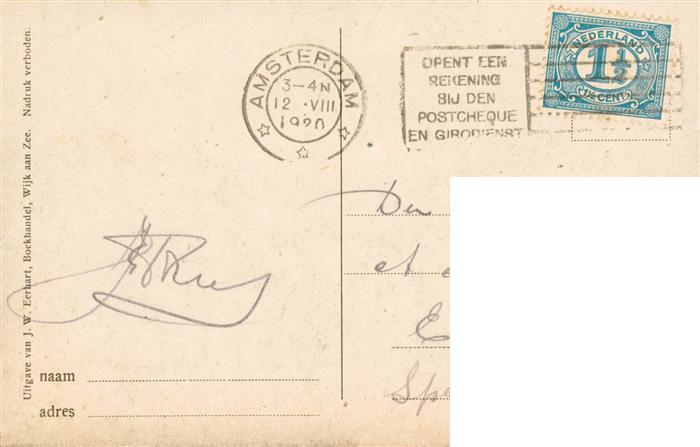 Uitgave van J. W. Eerhart, Boekhandel, Wijk aan Zee. Nadruk verboden.
AMSTERDAM
3-4N
12 .VIII
1920
OPENT EEN
REKENING
BIJ DEN
POSTCHEQUE
EN GIRODIENST
NEDERLAND
1½
1½ CENT
Den
naam
adres